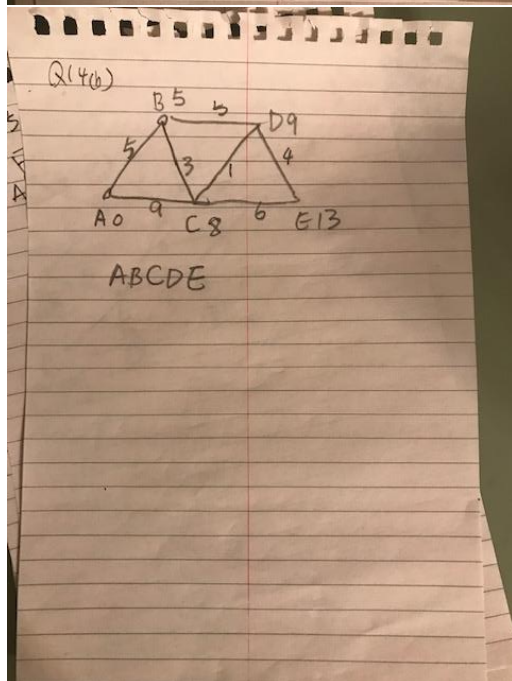 Q14(b)
B 5 5 D9
5 3 1 4
A 0 9 C 8 6 E13
ABCDE